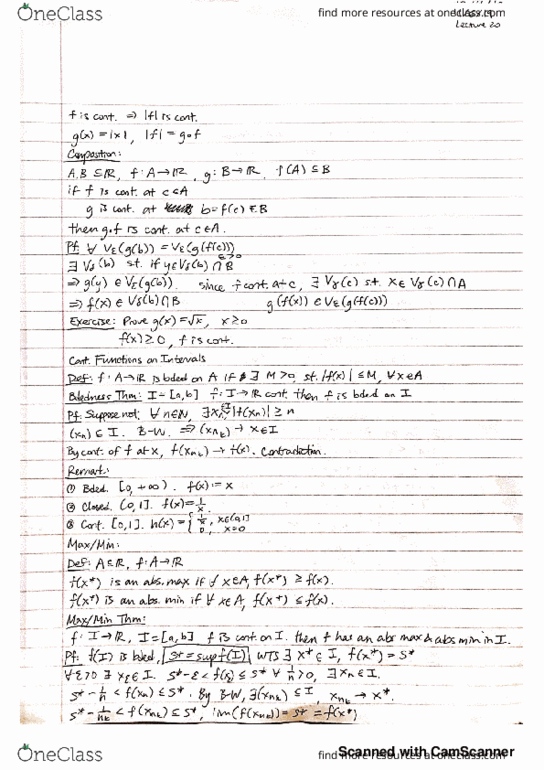 OneClass
find more resources at oneclass.com
Lecture 20
f is cont. ⇒ |f| is cont.
g(x) = |x|, |f| = g∘f
Composition:
A,B ⊆ ℝ, f: A→ℝ, g: B→ℝ, f(A) ⊆ B
if f is cont. at c ∈ A
g is cont. at b = f(c) ∈ B
then g∘f is cont. at c ∈ A.
Pf: ∀ Vε(g(b)) = Vε(g(f(c)))
ε>0
∃ Vδ(b) st. if y ∈ Vδ(b) ∩ B
⇒ g(y) ∈ Vε(g(b)). since f cont. at c, ∃ Vγ(c) st. x ∈ Vγ(c) ∩ A
⇒ f(x) ∈ Vδ(b) ∩ B g(f(x)) ∈ Vε(g(f(c)))
Exercise: Prove g(x) = √x, x ≥ 0
f(x) ≥ 0, f is cont.
Cont. Functions on Intervals
Def: f: A→ℝ is bded on A if ∃ M>0 st. |f(x)| ≤ M, ∀x∈A
Bdedness Thm: I = [a,b] f: I→ℝ cont. then f is bded on I
Pf: Suppose not, ∀ n∈N, ∃xn |f(xn)| ≥ n
(xn) ⊆ I. B-W. ⇒ (xnk) → x∈I
By cont. of f at x, f(xnk) → f(x). Contradiction.
Remark:
① Bded. [0, +∞). f(x) = x
② Closed. (0,1]. f(x) = 1/x.
③ Cont. [0,1]. h(x) = { 1/x, x∈(0,1]
0, x=0
Max/Min:
Def: A⊆ℝ, f: A→ℝ
f(x*) is an abs. max if ∀ x∈A, f(x*) ≥ f(x).
f(x*) is an abs. min if ∀ x∈A, f(x*) ≤ f(x).
Max/Min Thm:
f: I→ℝ, I = [a,b] f is cont. on I. then f has an abs max & abs min in I.
Pf: f(I) is bded, s* = sup f(I) WTS ∃ x* ∈ I, f(x*) = s*
∀ε>0 ∃ xε∈I. s*-ε < f(xε) ≤ s* ∀ 1/n >0, ∃ xn∈I.
s* - 1/n < f(xn) ≤ s*. By B-W, ∃(xnk) ⊆ I, xnk → x*.
s* - 1/nk < f(xnk) ≤ s*, lim(f(xnk)) = s* = f(x*)
Scanned with CamScanner
OneClass
find more resources at oneclass.com